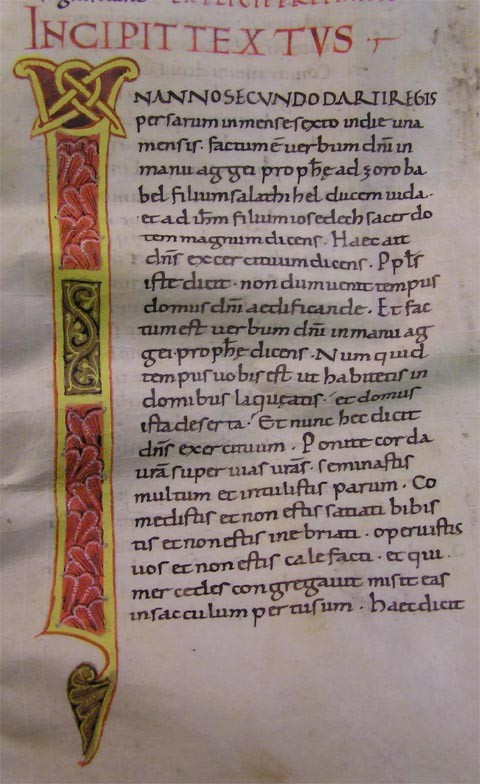 EXPLICIT
INCIPIT TEXTUS
IN ANNO SECUNDO DARII REGIS
persarum in mense sexto in die una
mensis · factum ē verbum dn̄i in
manu aggei prophe ad zoroba
bel filium salathihel ducem iuda ·
et ad ihm filium iosedech sacerdo
tem magnum dicens · Haec ait
dn̄s excercituum dicens · Ppls
iste dicit · nondum venit tempus
domus dn̄i aedificande · Et fac
tum est verbum dn̄i in manu ag
gei prophe dicens · Numquid
tempus vobis est ut habitetis in
domibus laqueatis · et domus
ista deserta · Et nunc hec dicit
dn̄s exercituum · Ponite corda
vrā super vias vrās · seminastis
multum et intulistis parum · Co
medistis et non estis satiati bibis
tis et non estis inebriati · operuistis
vos et non estis calefacti · et qui
mercedes congregavit misit eas
in sacculum pertusum · haec dicit